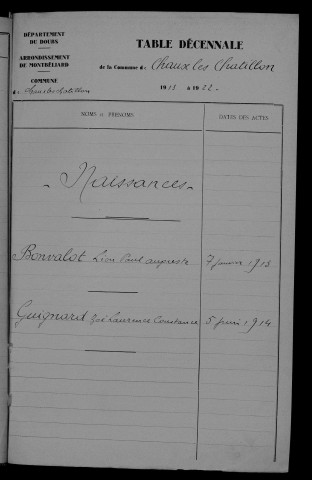 DÉPARTEMENT
DU DOUBS
ARRONDISSEMENT
DE MONTBÉLIARD
COMMUNE
TABLE DÉCENNALE
de la Commune de Chaux les Chatillon
1913 à 1922
NOMS & PRÉNOMS
DATES DES ACTES
Naissances
Bonvalot Léon Paul auguste 7 janvier 1913
Guignard Zoé Laurence Constance 5 juin 1914